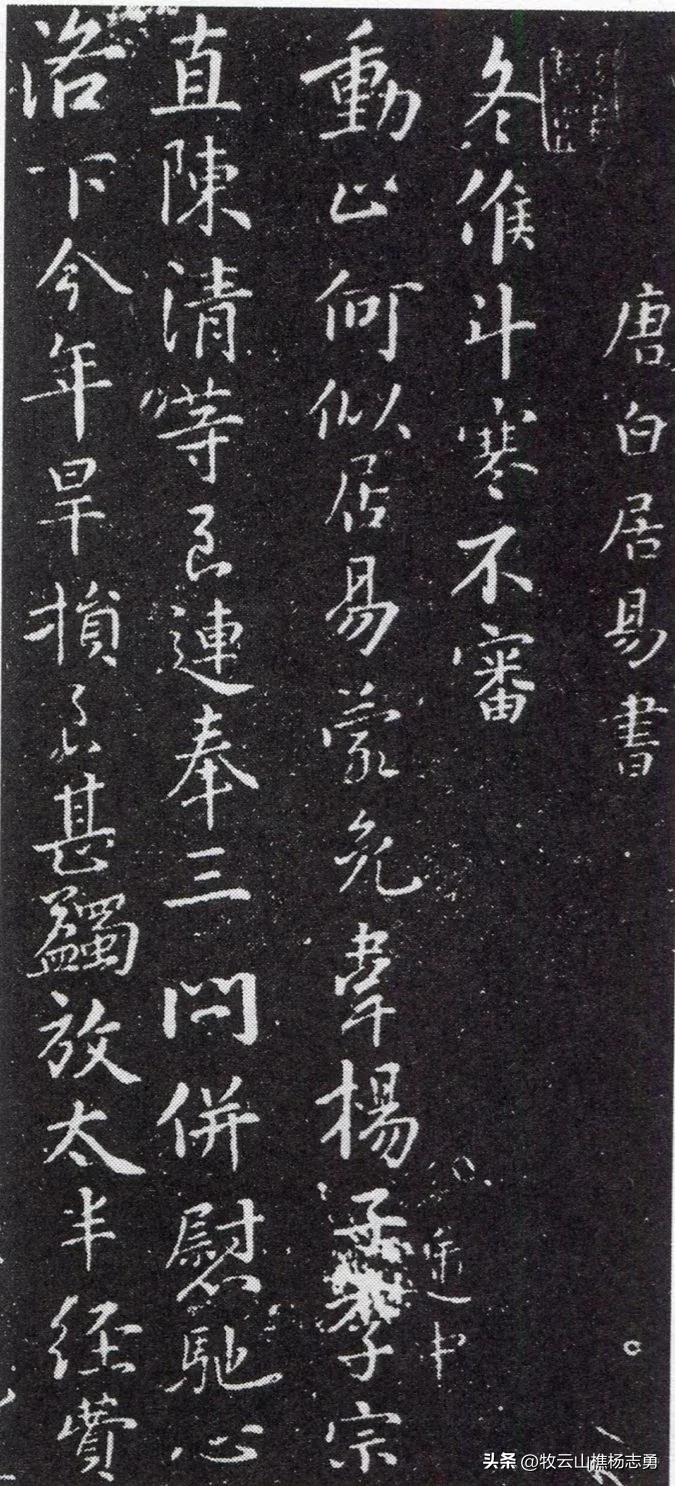 唐白居易書
冬候斗寒不審
動止何似居易蒙免韋楊子李宗
途中
直陳清等至連奉三問併慰馳心
洛下今年旱損至甚蠲放太半经費
头条 @牧云山樵杨志勇